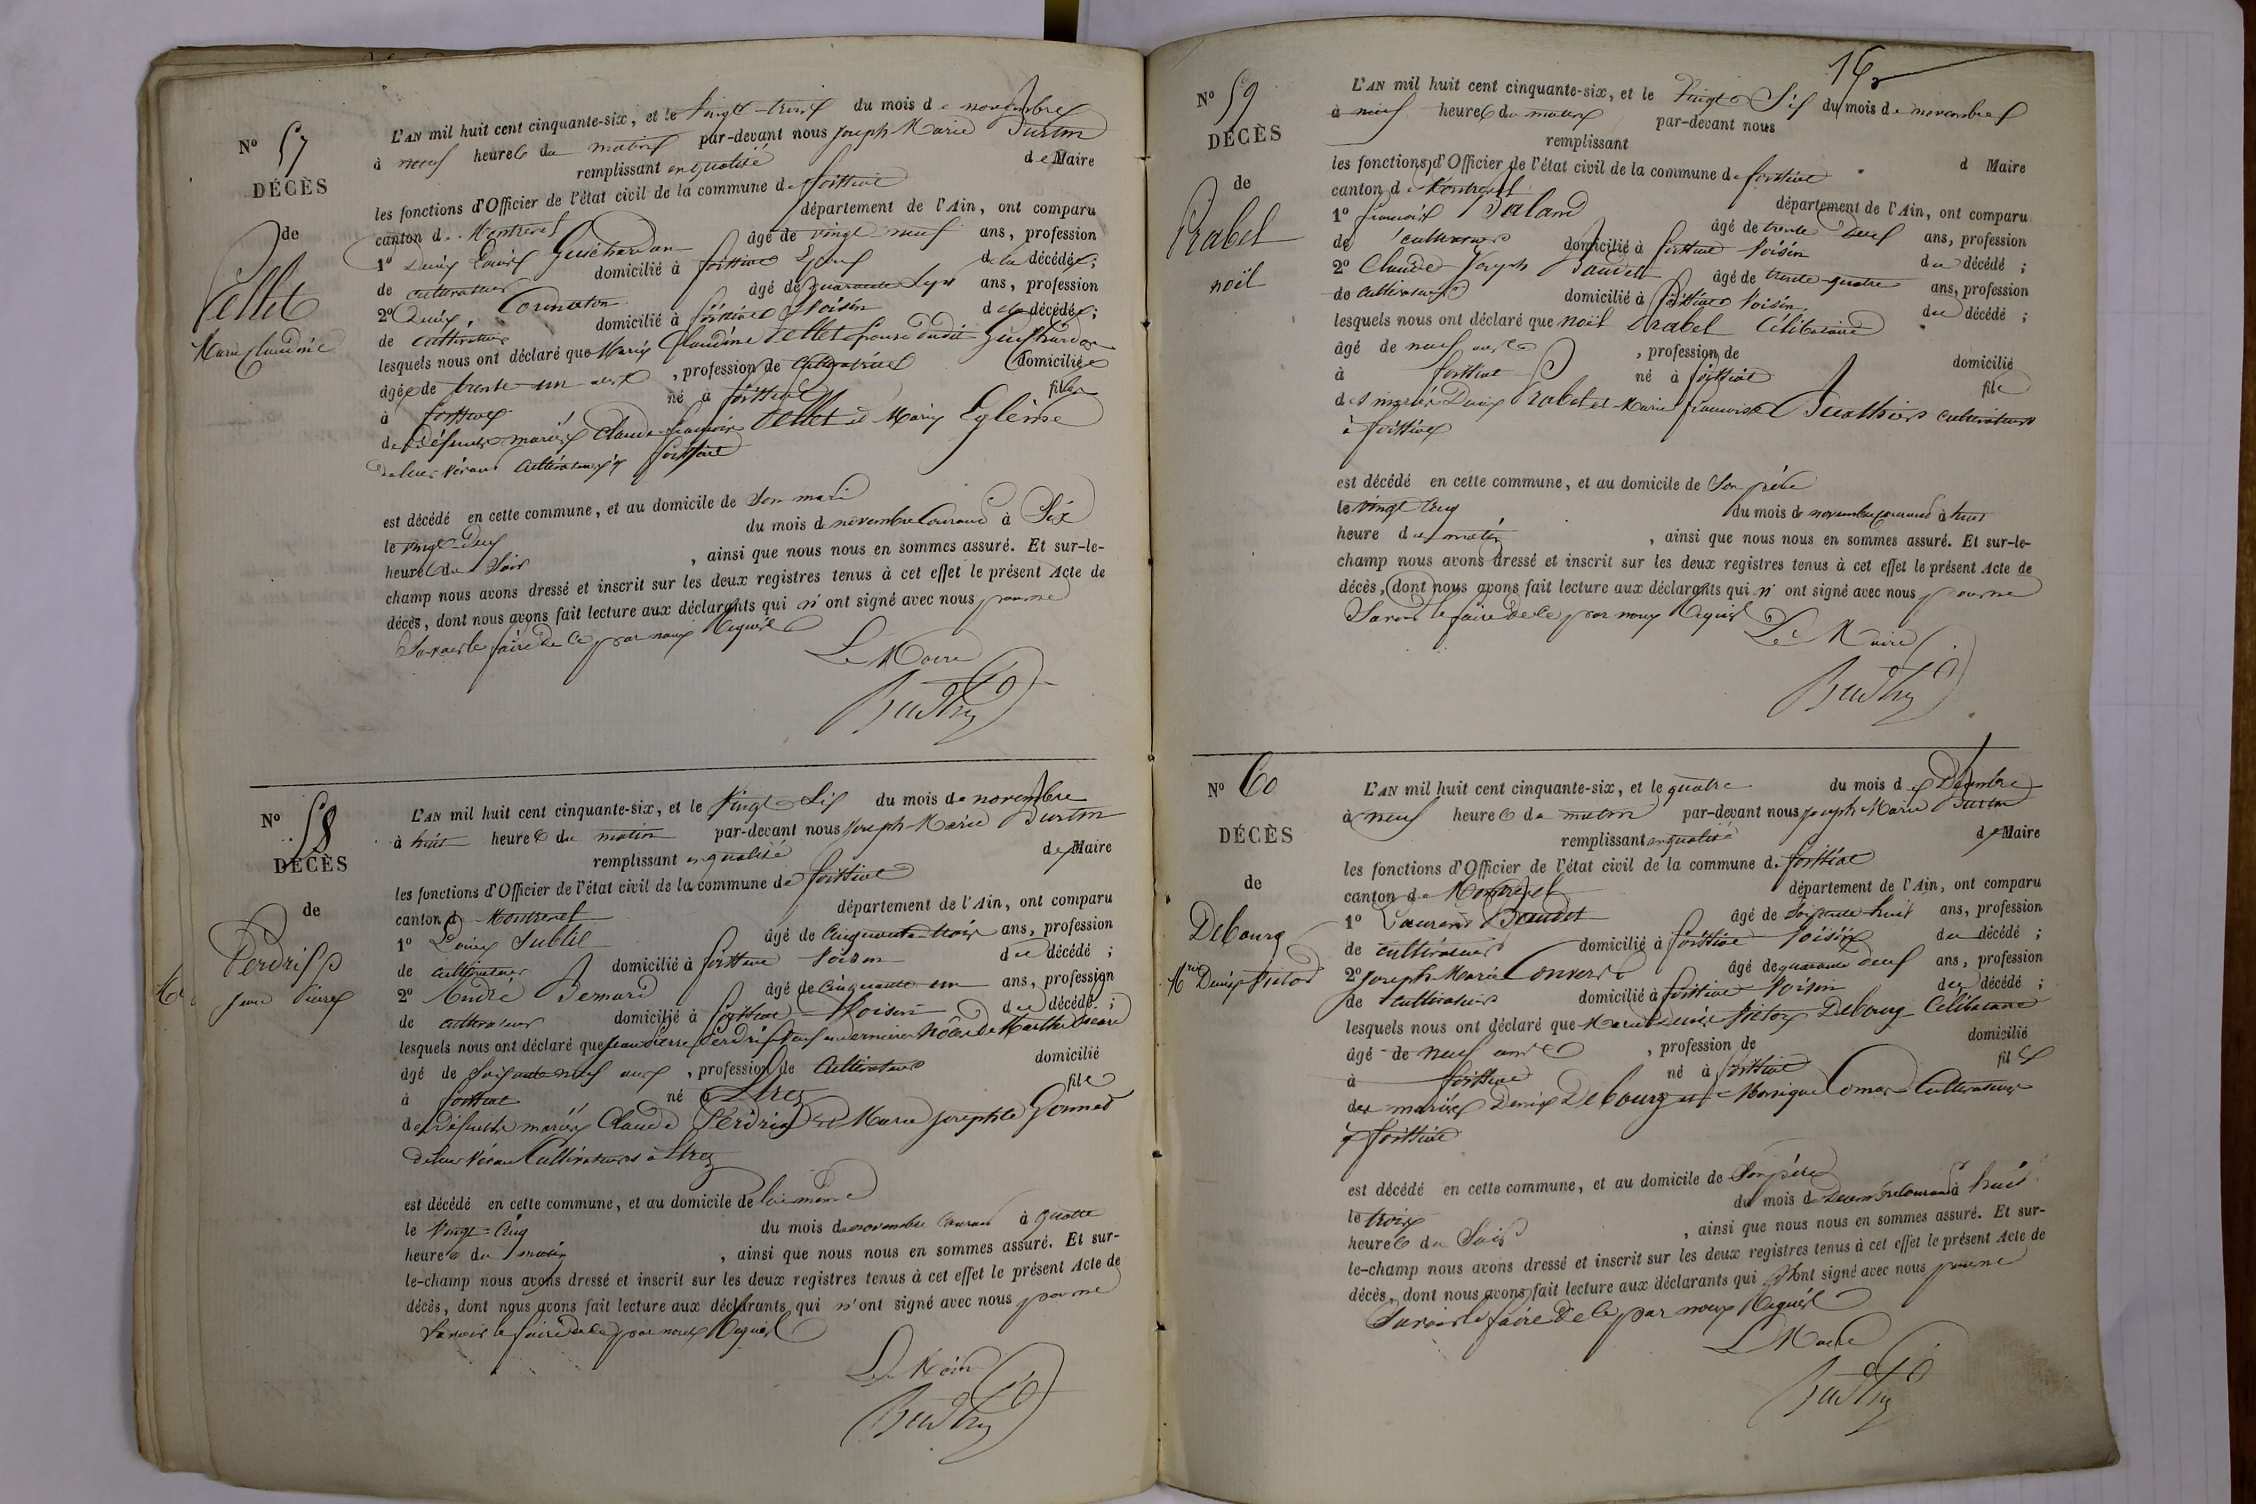 N° 57
DÉCÈS
de
Pellet
Marie Claudine
L'AN mil huit cent cinquante-six, et le vingt-trois du mois de novembre
à neuf heures du matin par-devant nous Joseph Marie
remplissant en qualité de Maire
les fonctions d'Officier de l'état civil de la commune de foissiat
canton de Montrevel département de l'Ain, ont comparu
1° Denis Louis Guichardan âgé de vingt neuf ans, profession
de cultivateur domicilié à foissiat Epoux de la décédée ;
2° Denis Cormaton âgé de quarante sept ans, profession
de cultivateur domicilié à foissiat Voisin de la décédée ;
lesquels nous ont déclaré que Marie Claudine Pellet Epouse dudit Guichardan
âgée de trente un ans , profession de Cultivatrice domiciliée
à foissiat né à foissiat fille
de défunts mariés Claude françois Pellet et Marie
de leur vivant Cultivateurs à foissiat
est décédé en cette commune, et au domicile de Son mari
le vingt-deux du mois de novembre Courant à Six
heures du Soir , ainsi que nous nous en sommes assuré. Et sur-le-
champ nous avons dressé et inscrit sur les deux registres tenus à cet effet le présent Acte de
décès, dont nous avons fait lecture aux déclarants qui n'ont signé avec nous pour ne
Savoir le faire de ce par nous Requis
Le Maire
N° 58
DÉCÈS
de
Perdrix
Jean Pierre
L'AN mil huit cent cinquante-six, et le Vingt Six du mois de novembre
à huit heures du matin par-devant nous Joseph Marie
remplissant en qualité de Maire
les fonctions d'Officier de l'état civil de la commune de foissiat
canton de Montrevel département de l'Ain, ont comparu
1° Louis Sublil âgé de Cinquante trois ans, profession
de cultivateur domicilié à foissiat Voisin du décédé ;
2° André Bernard âgé de Cinquante un ans, profession
de cultivateur domicilié à foissiat Voisin du décédé ;
lesquels nous ont déclaré que Jean Pierre Perdrix Veuf en dernière Nôces de Marthe
âgé de Soixante neuf ans , profession de Cultivateur domicilié
à foissiat né à fils
de défunts mariés Claude Perdrix et Marie Josephte
de leur Vivant Cultivateurs à
est décédé en cette commune, et au domicile de lui même
le Vingt-Cinq du mois de novembre Courant à quatre
heures du matin , ainsi que nous nous en sommes assuré. Et sur-
le-champ nous avons dressé et inscrit sur les deux registres tenus à cet effet le présent Acte de
décès, dont nous avons fait lecture aux déclarants qui n'ont signé avec nous pour ne
Savoir le faire de ce par nous Requis
Le Maire
N° 59
DÉCÈS
de
Prabel
noël
L'AN mil huit cent cinquante-six, et le Vingt Six du mois de novembre
à neuf heures du matin par-devant nous
remplissant
les fonctions d'Officier de l'état civil de la commune de foissiat d Maire
canton de Montrevel département de l'Ain, ont comparu
1° françois Paland âgé de trente deux ans, profession
de cultivateur domicilié à foissiat Voisin du décédé ;
2° Claude Joseph Baudet âgé de trente-quatre ans, profession
de cultivateur domicilié à foissiat Voisin du décédé ;
lesquels nous ont déclaré que noël Prabel Célibataire
âgé de neuf ans , profession de domicilié
à foissiat né à foissiat fils
des mariés Denis Prabel et Marie françoise cultivateurs
à foissiat
est décédé en cette commune, et au domicile de Son père
le vingt Cinq du mois de novembre courant à
heure du matin , ainsi que nous nous en sommes assuré. Et sur-le-
champ nous avons dressé et inscrit sur les deux registres tenus à cet effet le présent Acte de
décès, dont nous avons fait lecture aux déclarants qui n'ont signé avec nous pour ne
Savoir le faire de ce par nous Requis
Le Maire
N° 60
DÉCÈS
de
Debourg
Mrie Denise Victor
L'AN mil huit cent cinquante-six, et le quatre du mois de Décembre
à neuf heures du matin par-devant nous Joseph Marie
remplissant en qualité de Maire
les fonctions d'Officier de l'état civil de la commune de foissiat
canton de Montrevel département de l'Ain, ont comparu
1° Laurent Baudet âgé de Soixante huit ans, profession
de cultivateur domicilié à foissiat Voisin du décédé ;
2° Joseph Marie Convert âgé de quarante deux ans, profession
de cultivateur domicilié à foissiat Voisin du décédé ;
lesquels nous ont déclaré que Marie Denise Victor Debourg Célibataire
âgé de neuf ans , profession de domicilié
à foissiat né à foissiat fils
des mariés Denis Debourg et Monique Comas Cultivateurs
à foissiat
est décédé en cette commune, et au domicile de Son père
le trois du mois de Décembre Courant à huit
heures du Soir , ainsi que nous nous en sommes assuré. Et sur-
le-champ nous avons dressé et inscrit sur les deux registres tenus à cet effet le présent Acte de
décès, dont nous avons fait lecture aux déclarants qui n'ont signé avec nous pour ne
Savoir le faire de ce par nous Requis
Le Maire